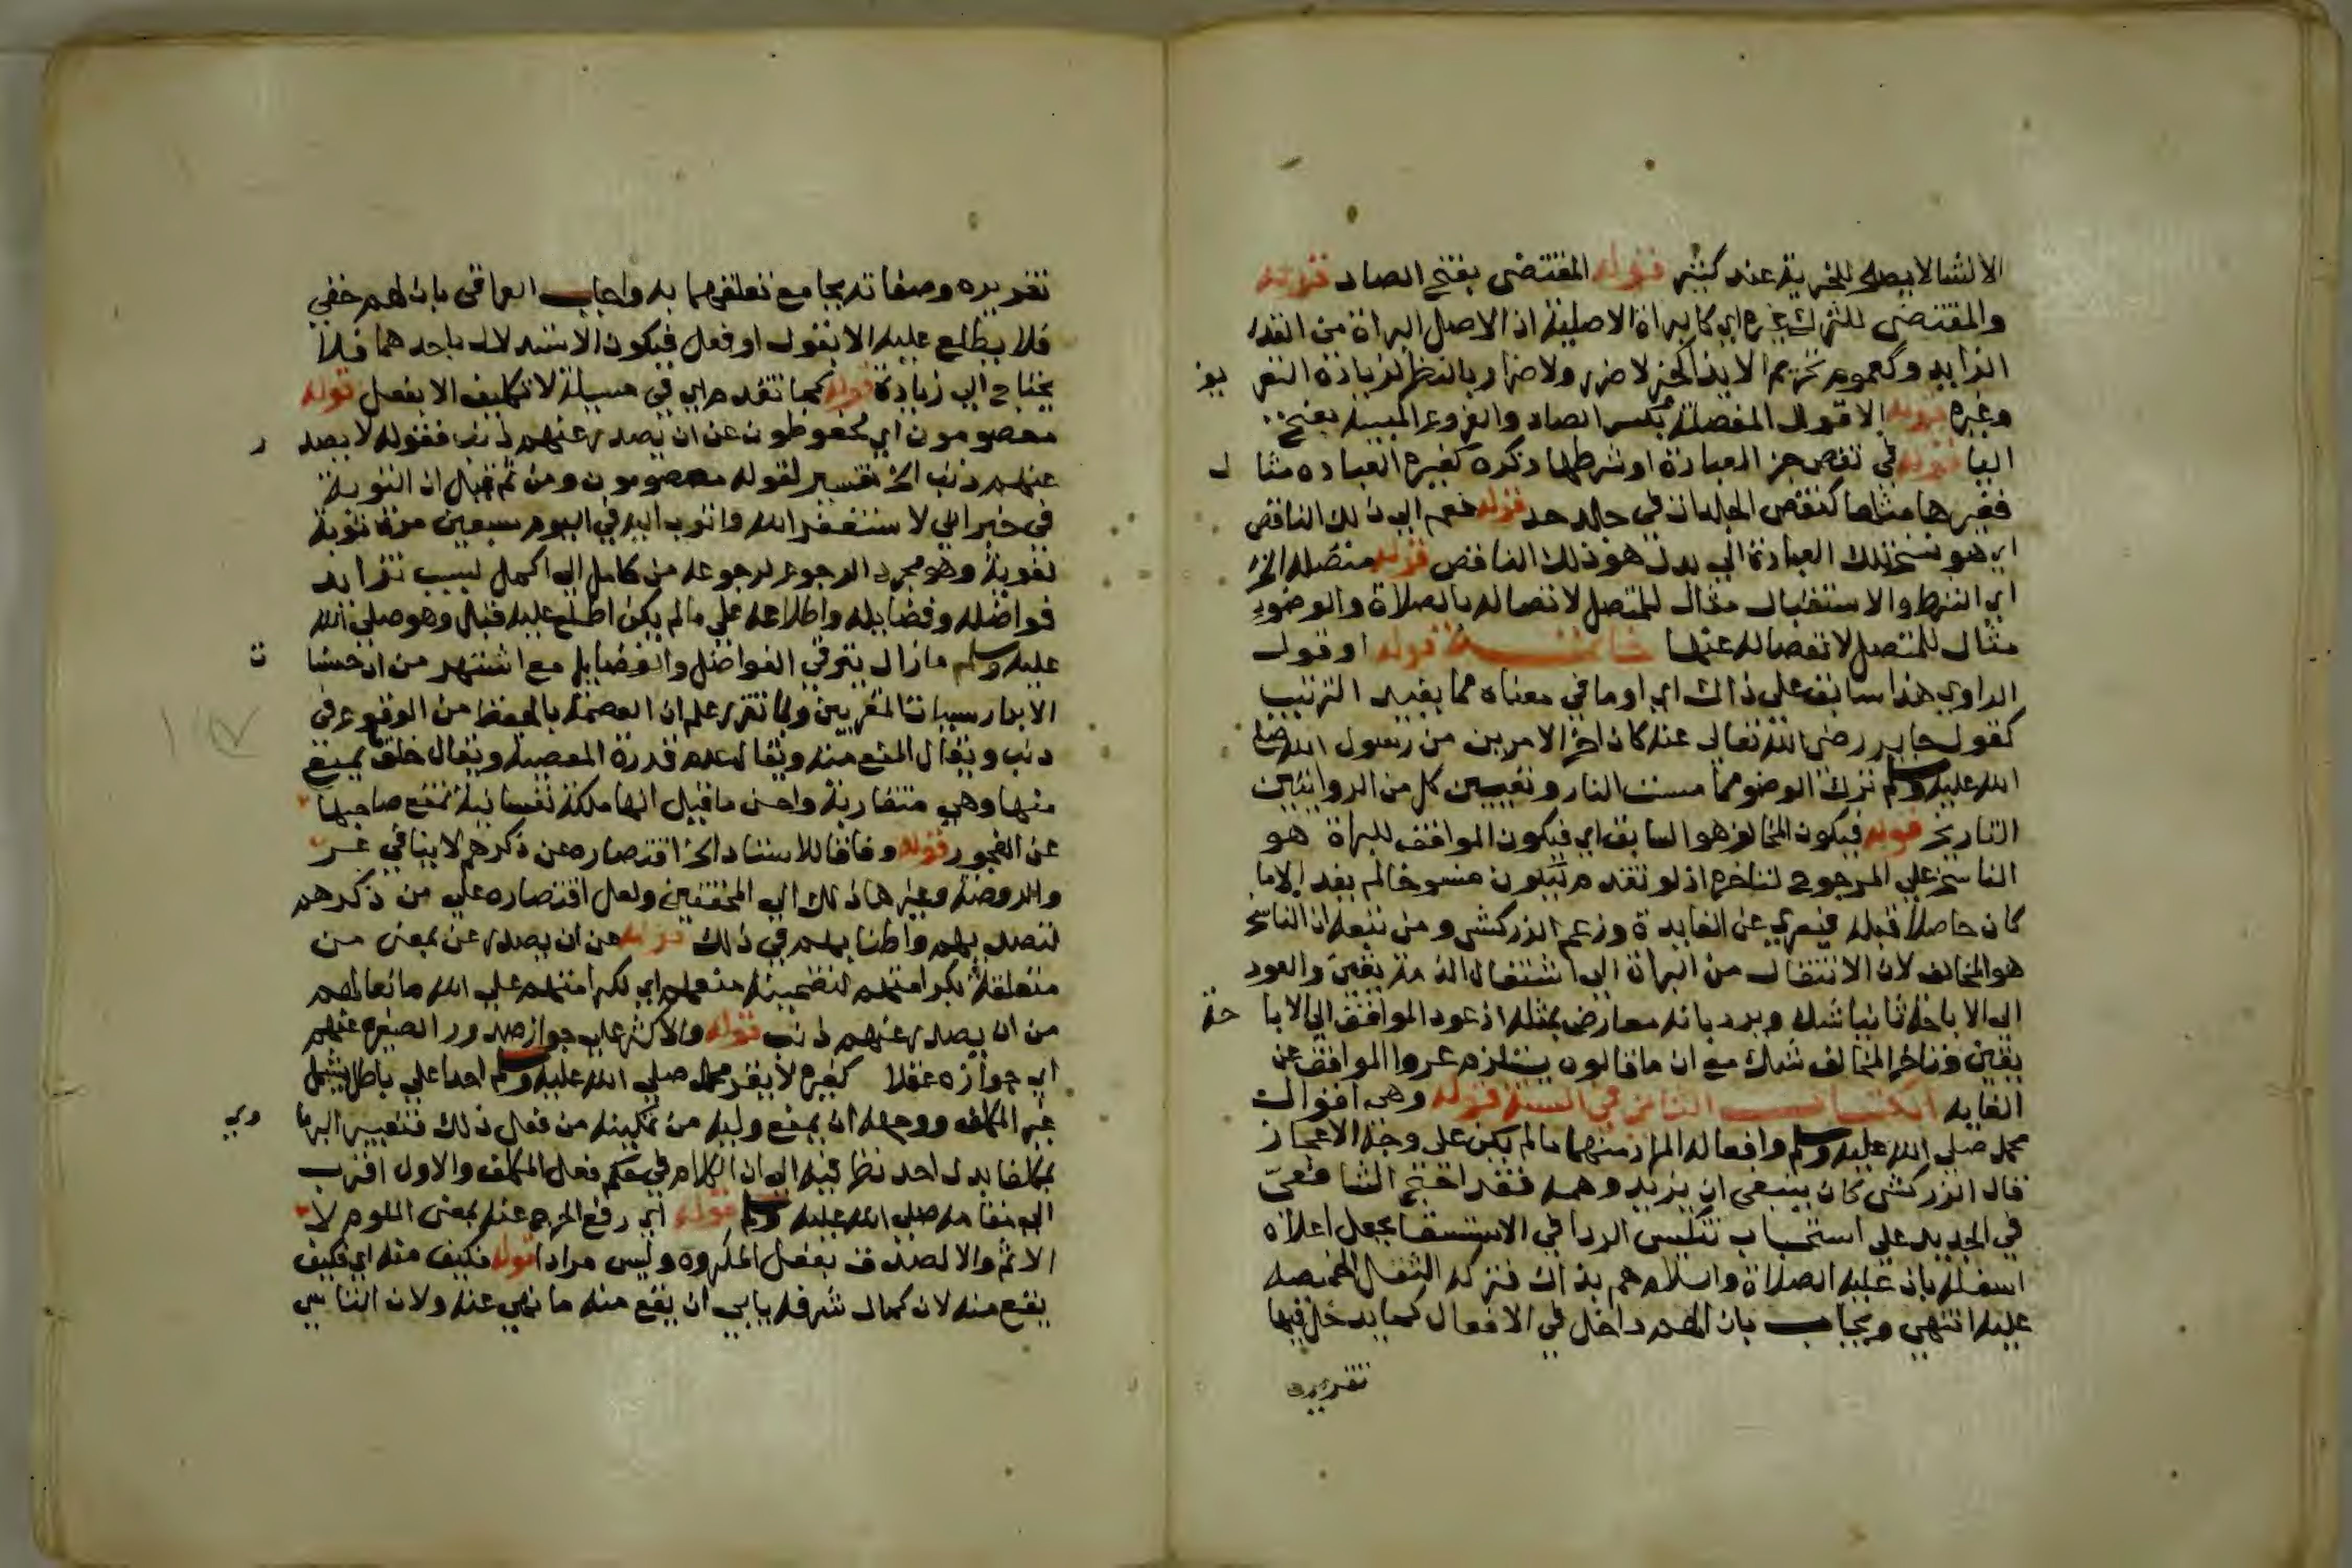 الانشا لا يصلح للخرية عند كثير قوله المقتضى بفتح الضاد قوله
والمقتضى للترك غيره اي كالبراة الاصلية اذ الاصل البراة من القدر
الزايد وكعموم تحريم الايذا كخبر لا ضرر ولا ضرار بالنظر لزيادة التغريب
وغيره قوله الاقوال المفصلة بكسر الصاد والفروع المبينة بفتح
اليا قوله في نقص جز العبادة او شرطها ذكره كغيره العباده مثال
فغيرها مثلها كنقص الجلدات في جلد حد قوله نعم الي ذلك الناقص
اي هو نسخ تلك العبادة الي بدل هو ذلك الناقص قوله متصله الخ
اي الشرط والاستقبال مثال للمتصل لاتصاله بالصلاة والوضوء
مثال للمتصل لانفصاله عنها خاتمة قوله او قول
الراوي هذا سابق على ذاك اي او ما في معناه مما يفيد الترتيب
كقول جابر رضى الله تعالى عنه كان اخر الامرين من رسول الله صلى
الله عليه وسلم ترك الوضو مما مست النار وتعيين كل من الروايتين
التاريخ قوله فيكون المخالف هو السابق اي فيكون الموافق للبراة هو
الناسخ على المرجوح لتاخره اذ لو تقدم يكون منسوخا لم يفد الا ما
كان حاصلا قبله فيعري عن الفايدة وزعم الزركشي ومن تبعه ان الناسخ
هو المخالف لان الانتقال من البراة الى اشتغال الذمة يقين والعود
الى الاباحة ثانيا شك ويرد بانه معارض بمثله اذ عود الموافق الى الاباحة
يقين وتاخر المخالف شك مع ان ما قالوه يستلزم عروا الموافق عن
الفايه الكتاب الثانى في السنة قوله وهى اقوال
محمد صلى الله عليه وسلم وافعاله المراد منهما ما لم يكن على وجه الاعجاز
قال الزركشى كان ينبغى ان يزيد وهمه فقد احتج الشافعى
في الجديد على استحباب تنكيس الردا في الاستسقا بجعل اعلاه
اسفله بانه عليه الصلاة والسلام هم بذلك فتركه لثقل الخميصه
عليه انتهي ويجاب بان الهم داخل في الافعال كما يدخل فيها
تقريره
تقريره وصفاته بجامع تعلقهما به واجاب العراقى بان الهم خفي
فلا يطلع عليه الا بقول او فعل فيكون الاستدلال باحدهما فلا
يحتاج الى زيادة قوله كما تقدم اي في مسيلة لا تكليف الا بفعل قوله
معصومون اي محفوظون عن ان يصدر عنهم ذنب فقوله لا يصدر
عنهم ذنب الخ تفسير لقوله معصومون ومن ثم قيل ان التوبة
في خبر اني لاستغفر الله واتوب اليه في اليوم سبعين مرة توبة
لغوية وهو مجرد الرجوع لرجوعه من كامل الى اكمل بسبب تزايد
فواضله وفضايله واطلاعه على ما لم يكن اطلع عليه قبل وهو صلى الله
عليه وسلم ما زال يترقي الفواضل والفضايل مع اشتهر من ان حسنات
الابرار سيات المقربين ولما تقرر علم ان العصمة بالحفظ من الوقوع في
ذنب ويقال المنع منه ويقال عدم قدرة المعصية ويقال خلق يمنع
منها وهي متقاربة واحسن ما قيل انها ملكة نفسانية تمنع صاحبها
عن الفجور قوله وفاقا للاستاد الخ اقتصاره عن ذكرهم لا ينافي عـز
والروضة وغيرها ذلك الى المحققين ولعل اقتصاره على من ذكرهم
لتصديهم واطنابهم في ذلك قوله عن ان يصدر عن بمعنى من
متعلقة بكرامتهم لتضمينه منعهم اي لكرامتهم على الله مانعا لهم
من ان يصدر عنهم ذنب قوله والاكثر على جواز صدور الصغيرة عنهم
اي جوازه عقلا كغيره لا يقر محمد صلى الله عليه وسلم احدا على باطل يشمل
غير المكلف ووجهه ان يمنع وليه من تمكينه من فعل ذلك فتعبير البرماوي
بمكلفا بدل احد نظر فيه الى ان الكلام في حكم فعل المكلف والاول اقرب
الى مقامه صلى الله عليه وسلم قوله اي رفع الحرج عنه بمعنى اللوم لا
الاثم والا لصدق بفعل المكروه وليس مرادا قوله فكيف منه اي فكيف
يقع منه لان كمال شرفه يابى ان يقع منه ما نهي عنه ولان التاسي